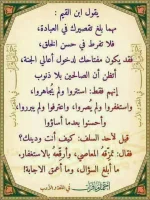 يقول ابن القيم :
مهما بلغ تقصيرك في العبادة،
فلا تفرط في حسن الخلق،
فقد يكون مفتاحك لدخول أعالي الجنة،
أتظن أن الصالحين بلا ذنوب
إنهم فقط: استتروا ولم يجاهروا،
واستغفروا ولم يُصروا، واعترفوا ولم يبرروا،
وأحسنوا بعدما أساؤوا
قيل لأحد السلف: كيف أنت ودينك؟
فقال: تمزّقه المعاصي، وأرقّعه بالاستغفار.
ما أبلغ السؤال، وما أعمق الاجابة!